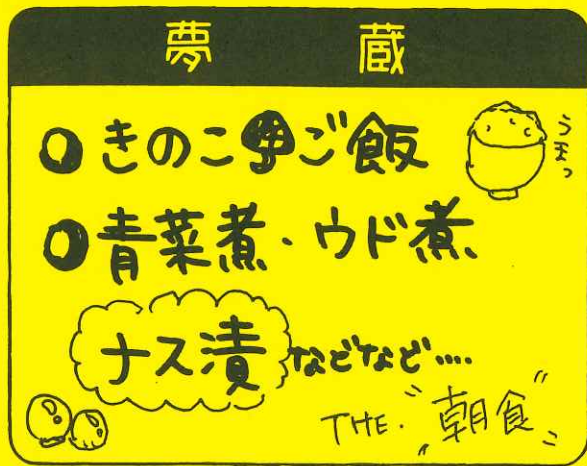 夢蔵
●きのこご飯
うまっ
●青菜煮・ウド煮
ナス漬などなど....
THE."朝食"